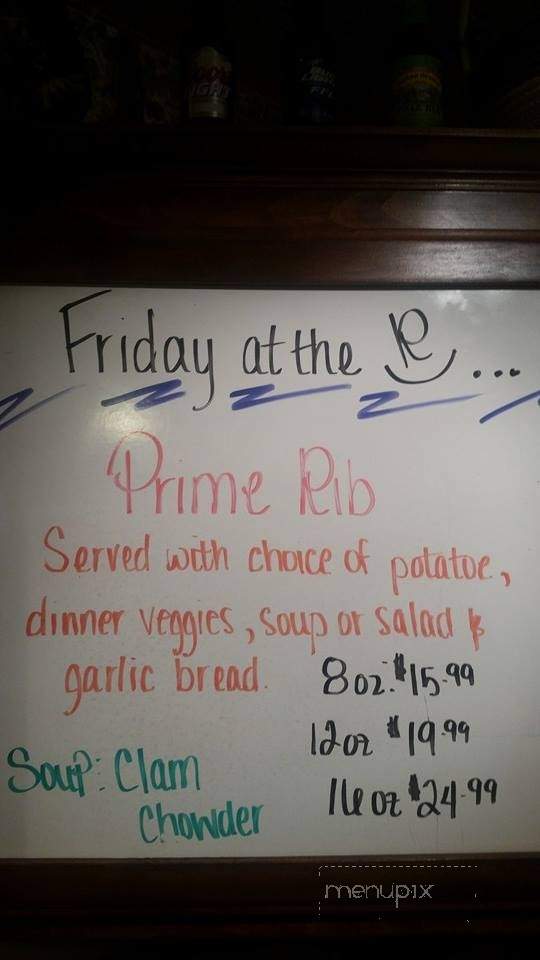 Friday at the R...
Prime Rib
Served with choice of potatoe,
dinner veggies, soup or salad &
garlic bread.
8 oz. $15.99
12 oz $19.99
16 oz $24.99
Soup: Clam
Chowder
menupix